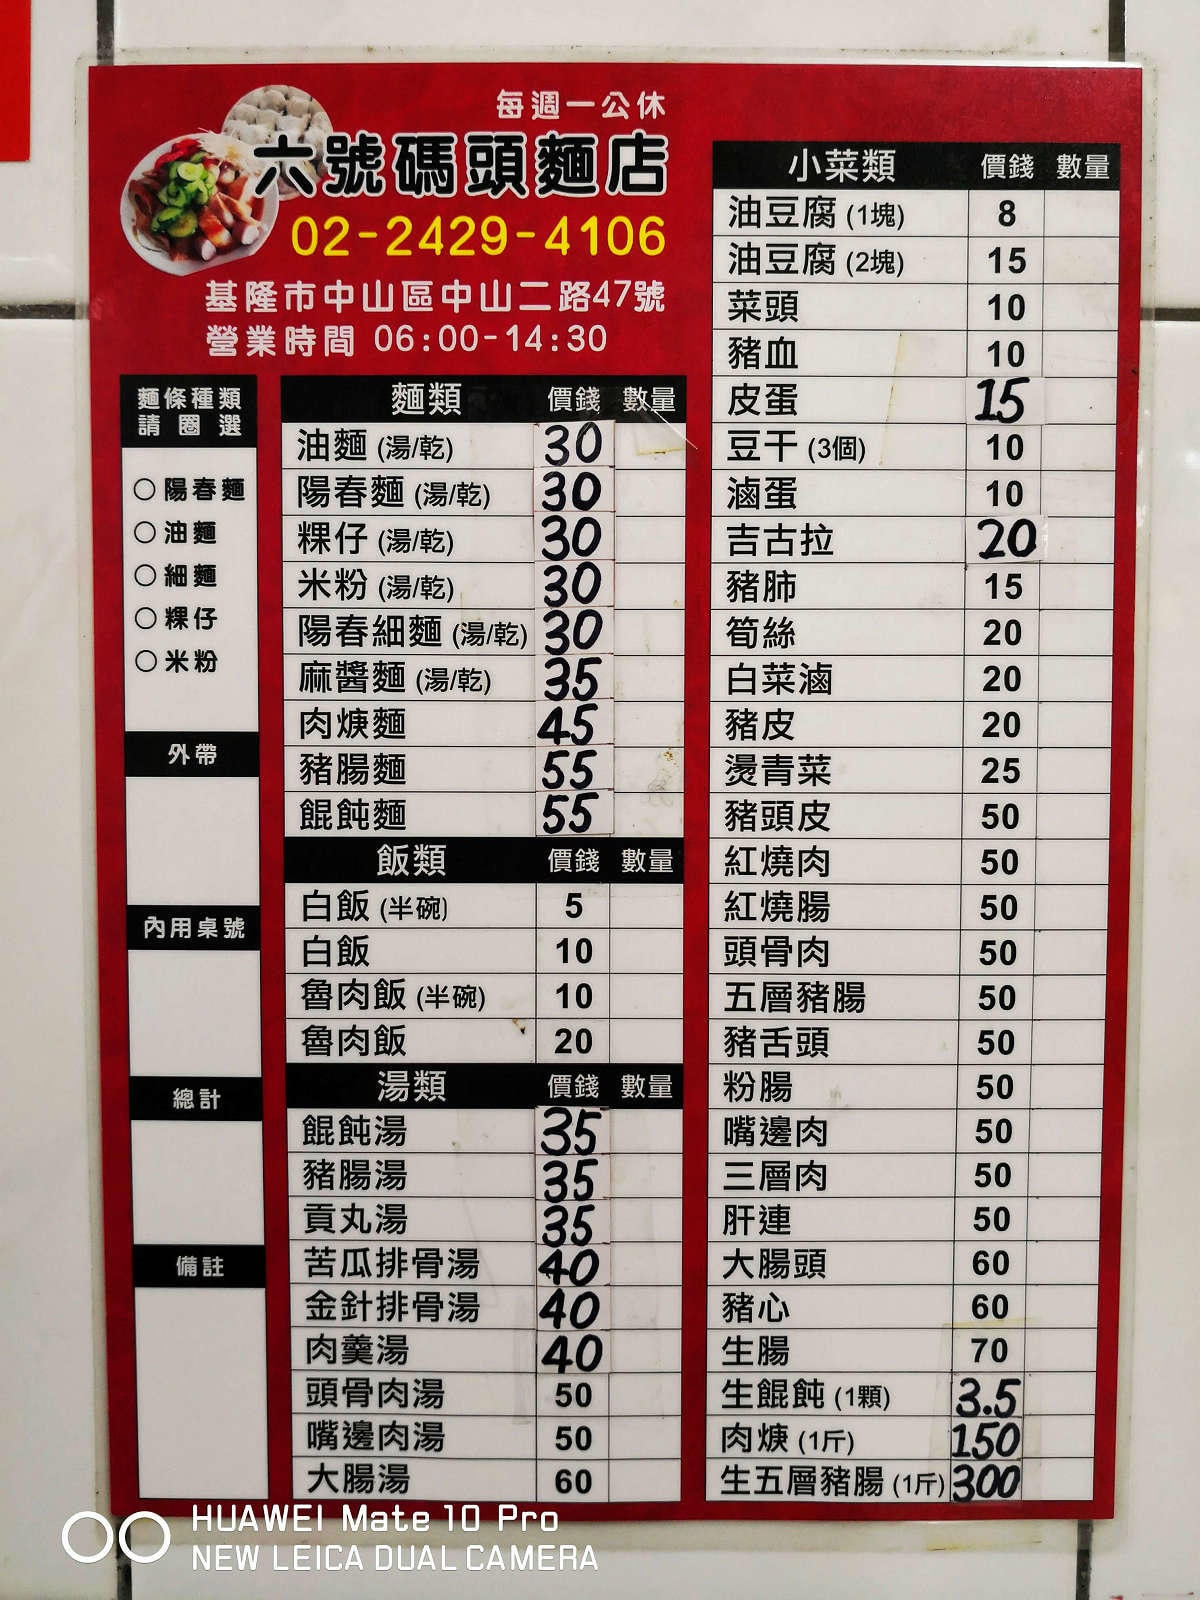 每週一公休
六號碼頭麵店
02-2429-4106
基隆市中山區中山二路47號
營業時間 06:00-14:30
麵條種類
請圈選
○陽春麵
○油麵
○細麵
○粿仔
○米粉
外帶
內用桌號
總計
備註
麵類 價錢 數量
油麵 (湯/乾) 30
陽春麵 (湯/乾) 30
粿仔 (湯/乾) 30
米粉 (湯/乾) 30
陽春細麵 (湯/乾) 30
麻醬麵 (湯/乾) 35
肉焿麵 45
豬腸麵 55
餛飩麵 55
飯類 價錢 數量
白飯 (半碗) 5
白飯 10
魯肉飯 (半碗) 10
魯肉飯 20
湯類 價錢 數量
餛飩湯 35
豬腸湯 35
貢丸湯 35
苦瓜排骨湯 40
金針排骨湯 40
肉羹湯 40
頭骨肉湯 50
嘴邊肉湯 50
大腸湯 60
小菜類 價錢 數量
油豆腐 (1塊) 8
油豆腐 (2塊) 15
菜頭 10
豬血 10
皮蛋 15
豆干 (3個) 10
滷蛋 10
吉古拉 20
豬肺 15
筍絲 20
白菜滷 20
豬皮 20
燙青菜 25
豬頭皮 50
紅燒肉 50
紅燒腸 50
頭骨肉 50
五層豬腸 50
豬舌頭 50
粉腸 50
嘴邊肉 50
三層肉 50
肝連 50
大腸頭 60
豬心 60
生腸 70
生餛飩 (1顆) 3.5
肉焿 (1斤) 150
生五層豬腸 (1斤) 300
HUAWEI Mate 10 Pro
NEW LEICA DUAL CAMERA